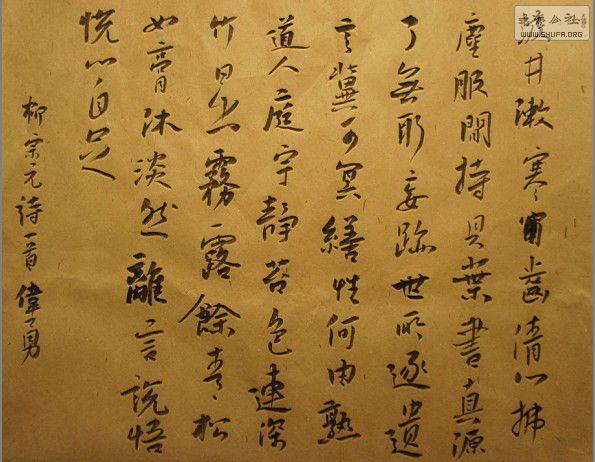 汲井漱寒齒清心拂
塵服閒持貝葉書真源
了無取妄跡世所逐遺
言冀可冥繕性何由熟
道人庭宇靜苔色連深
竹日出霧露餘青松
如膏沐淡然離言說悟
悅心自足
柳宗元詩一首 偉勇
公社
WWW.SHUFA.ORG